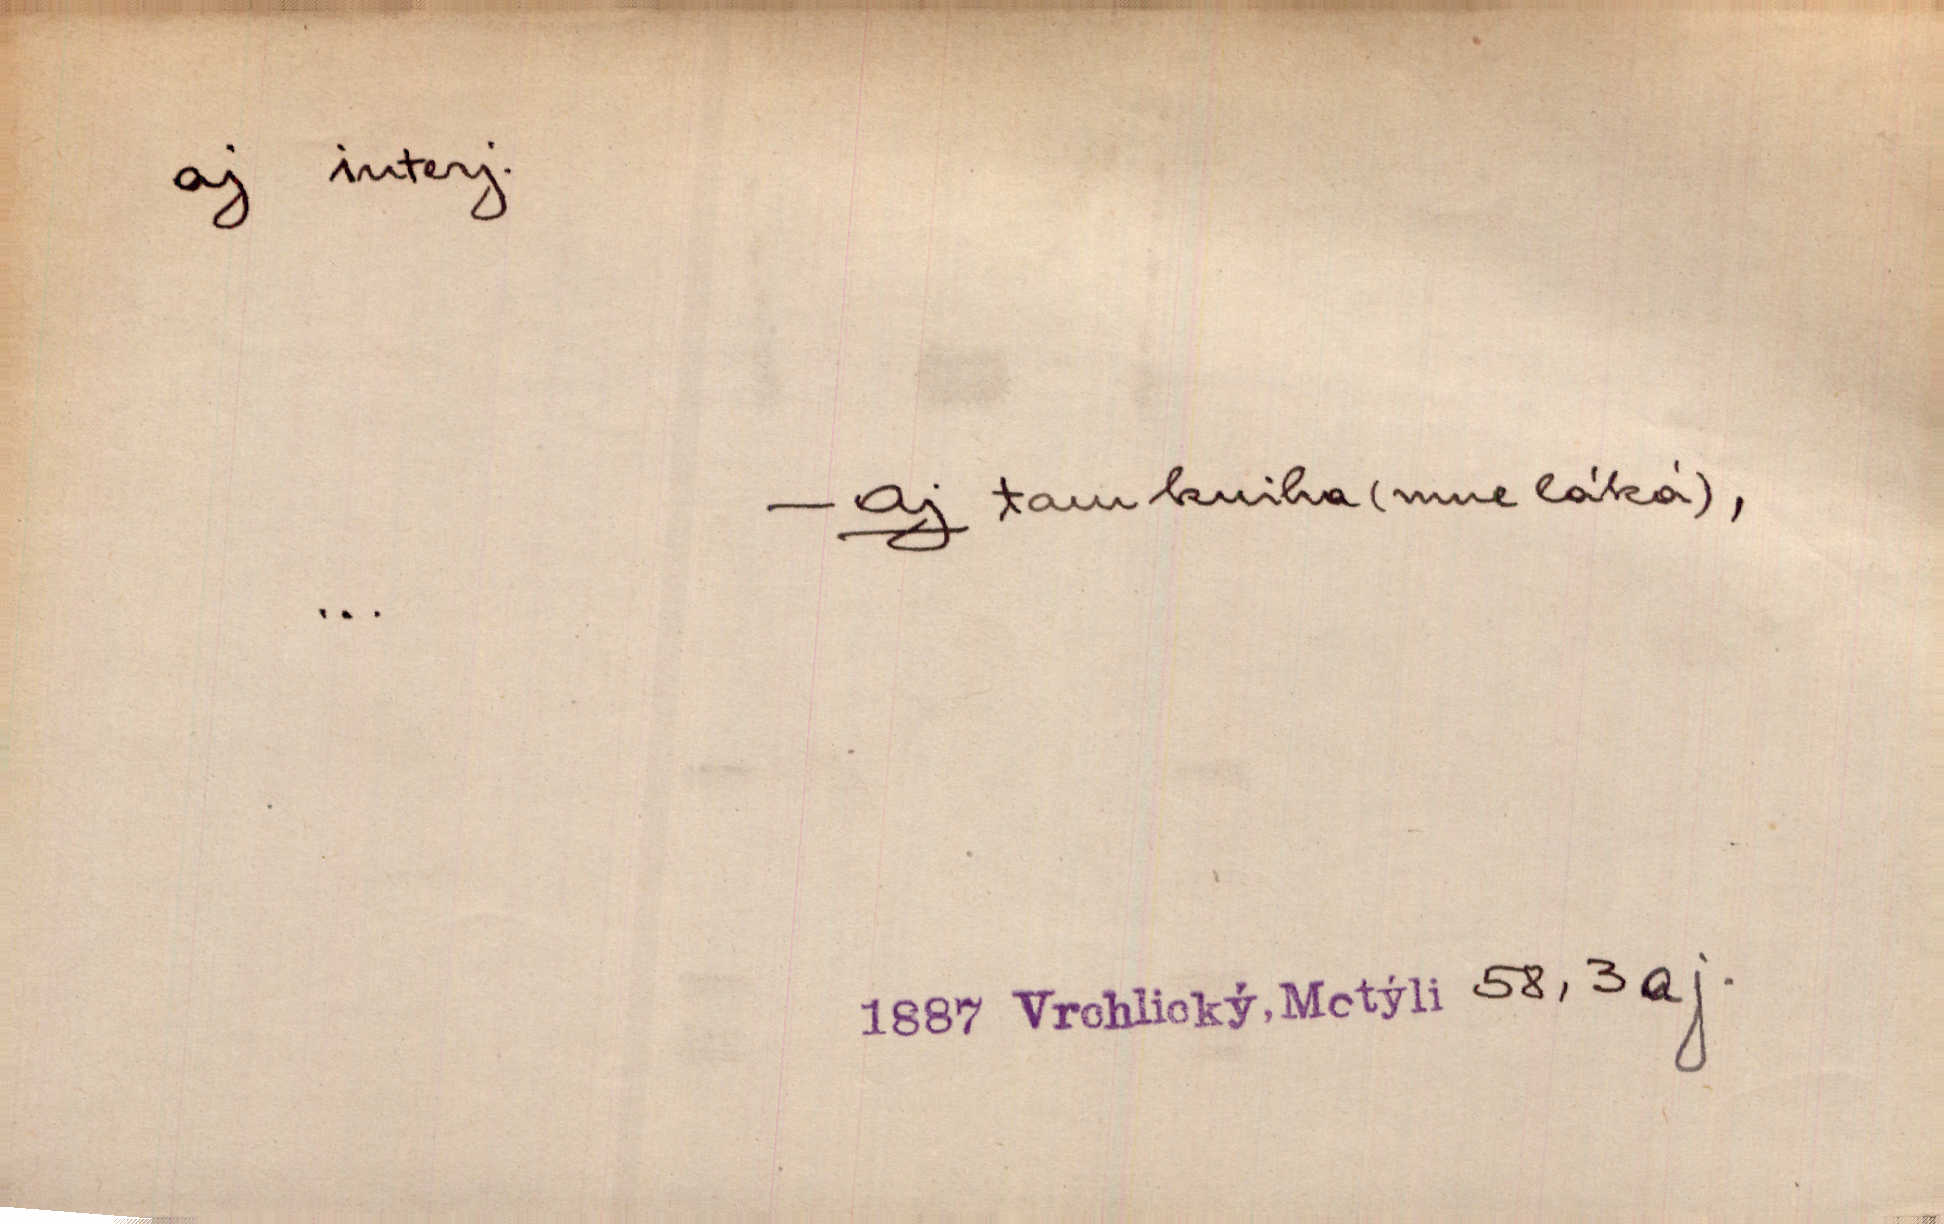 aj interj.
— Aj tam kniha (mne láká),
...
1887 Vrchlický, Motýli 58, 3 aj.